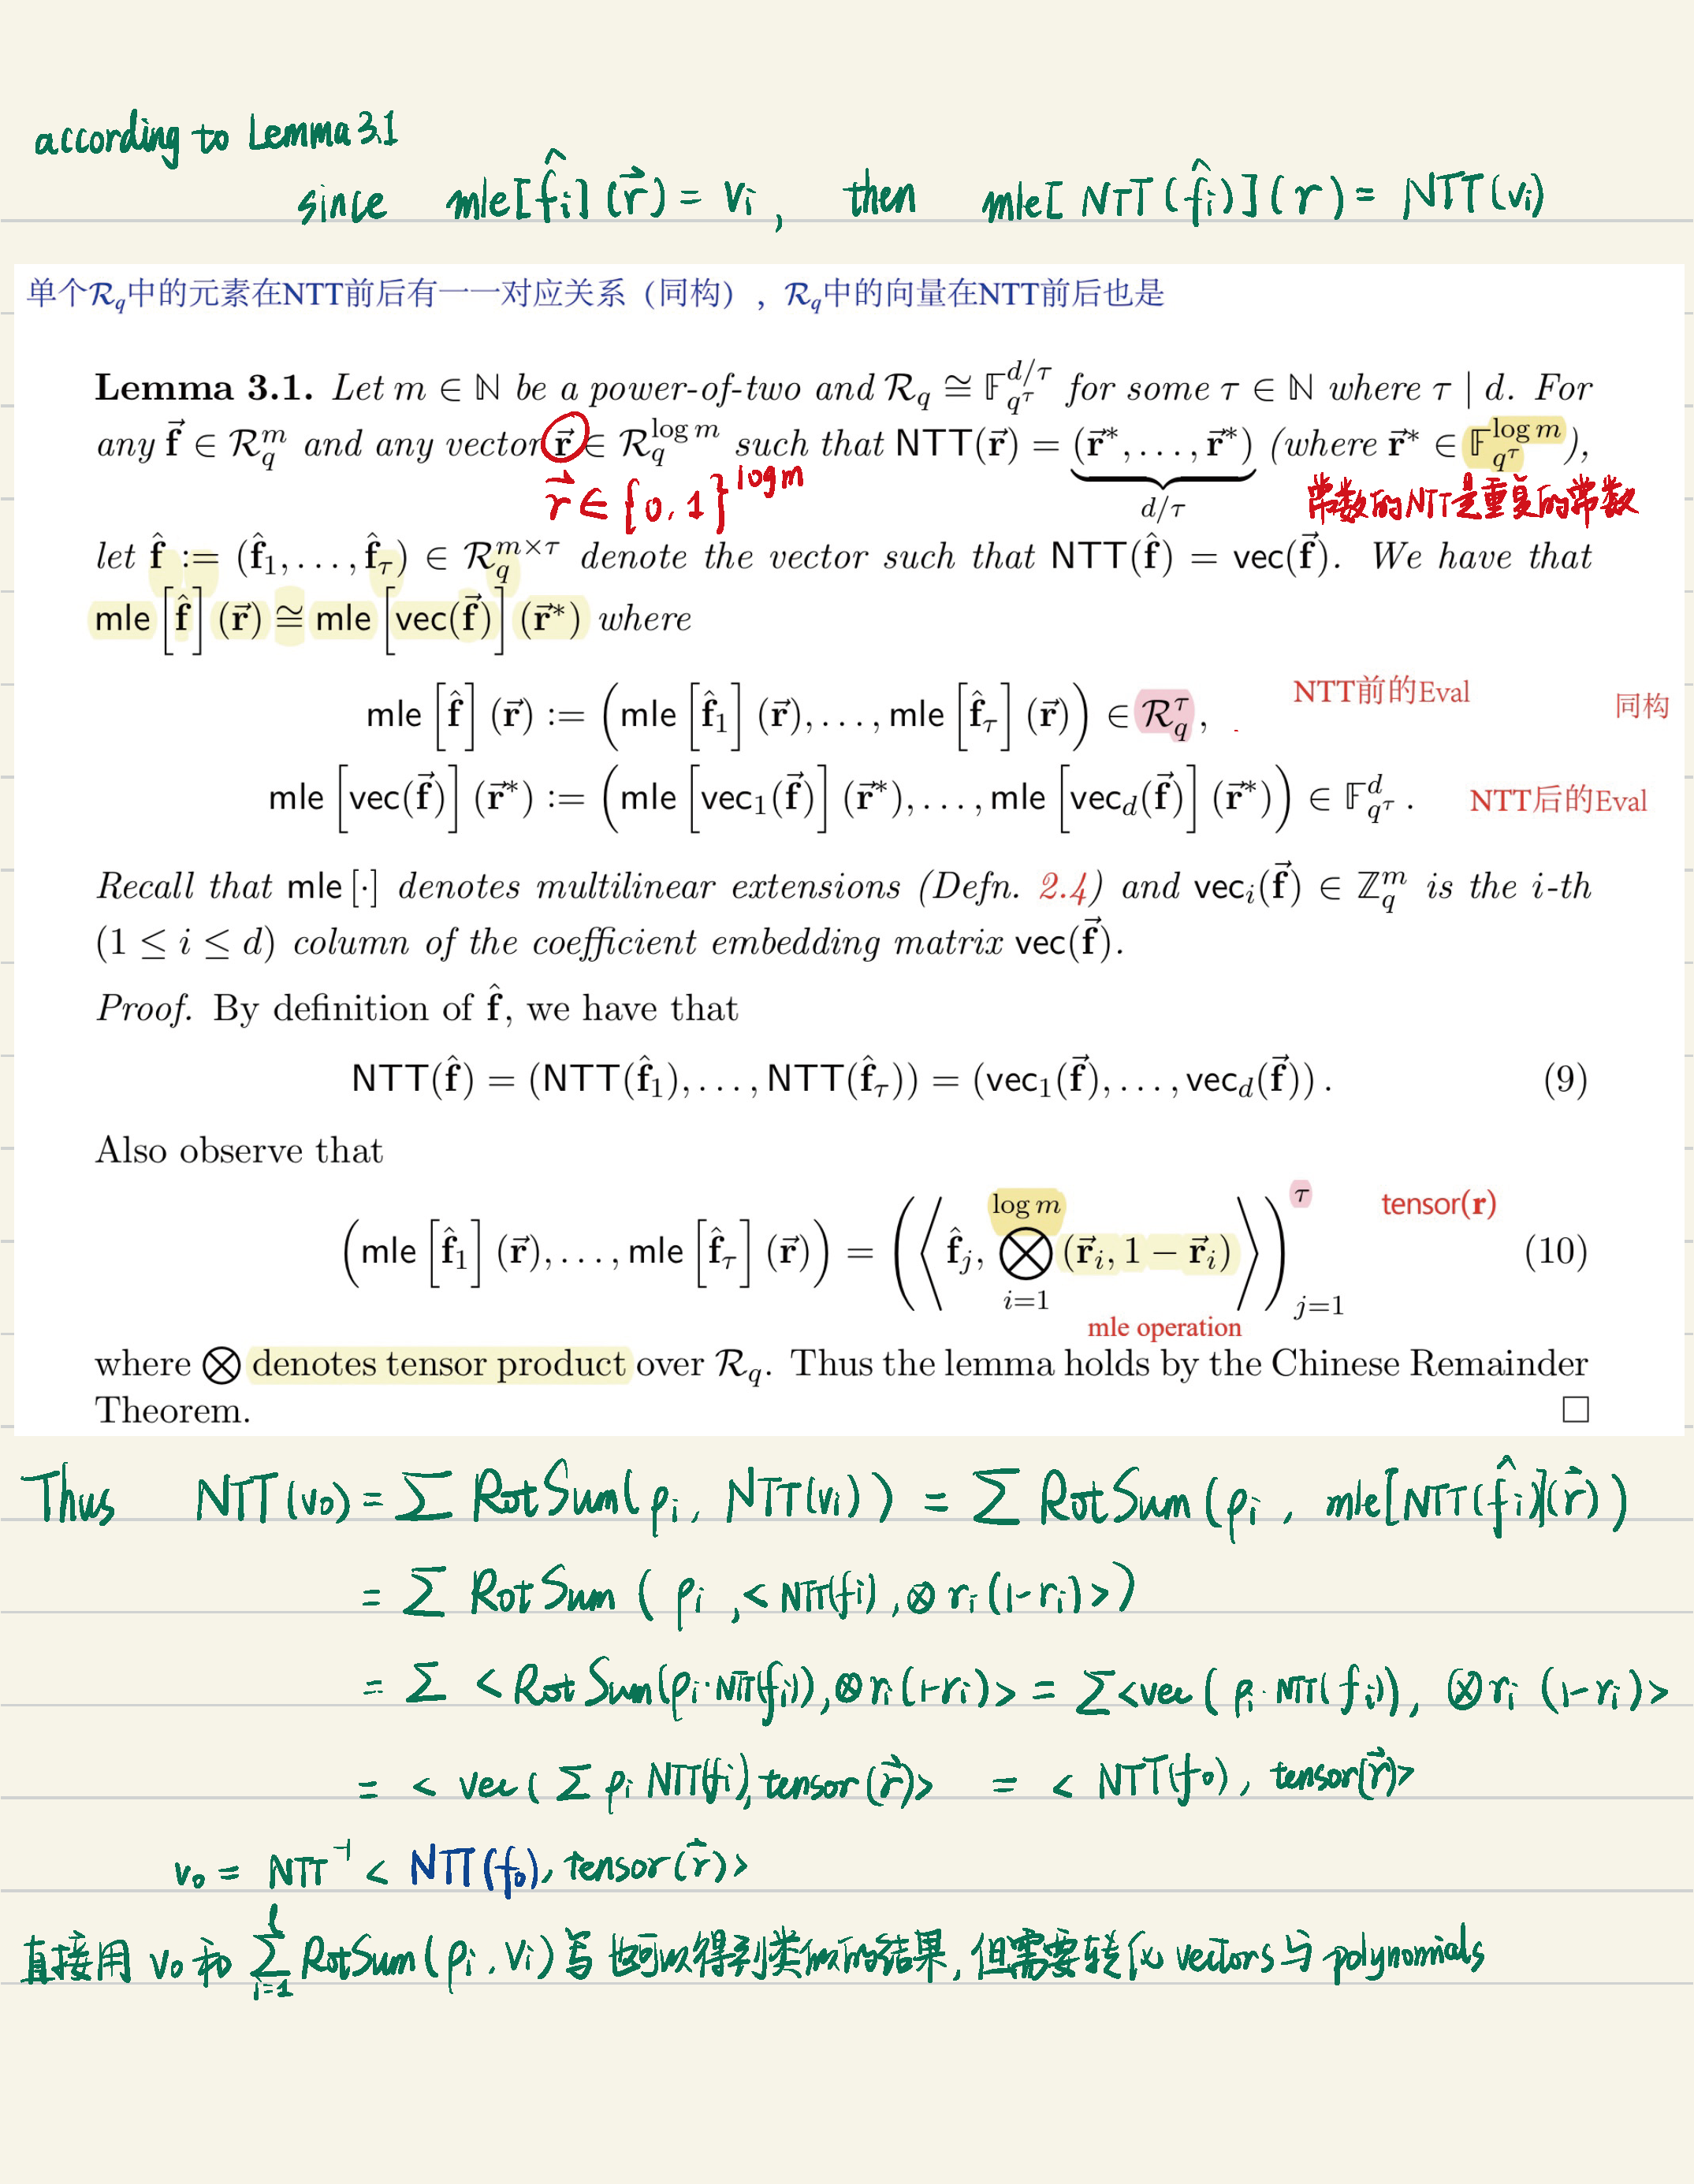 according to Lemma 3.1
since mle[f̂ᵢ](r⃗) = vᵢ, then mle[NTT(f̂ᵢ)](r) = NTT(vᵢ)
单个𝓡_q中的元素在NTT前后有一一对应关系（同构），𝓡_q中的向量在NTT前后也是
Lemma 3.1. Let m ∈ ℕ be a power-of-two and 𝓡_q ≅ 𝔽_{q^τ}^{d/τ} for some τ ∈ ℕ where τ | d. For
any f⃗ ∈ 𝓡_q^m and any vector r⃗ ∈ 𝓡_q^{log m} such that NTT(r⃗) = (r⃗*, . . . , r⃗*) (where r⃗* ∈ 𝔽_{q^τ}^{log m}),
r⃗ ∈ {0, 1}^{log m} d/τ 常数的NTT是重复的常数
let f̂ := (f̂₁, . . . , f̂_τ) ∈ 𝓡_q^{m×τ} denote the vector such that NTT(f̂) = vec(f⃗). We have that
mle [f̂] (r⃗) ≅ mle [vec(f⃗)] (r⃗*) where
mle [f̂] (r⃗) := (mle [f̂₁] (r⃗), . . . , mle [f̂_τ] (r⃗)) ∈ 𝓡_q^τ , NTT前的Eval 同构
mle [vec(f⃗)] (r⃗*) := (mle [vec₁(f⃗)] (r⃗*), . . . , mle [vec_d(f⃗)] (r⃗*)) ∈ 𝔽_{q^τ}^d . NTT后的Eval
Recall that mle [·] denotes multilinear extensions (Defn. 2.4) and vecᵢ(f⃗) ∈ ℤ_q^m is the i-th
(1 ≤ i ≤ d) column of the coefficient embedding matrix vec(f⃗).
Proof. By definition of f̂, we have that
NTT(f̂) = (NTT(f̂₁), . . . , NTT(f̂_τ)) = (vec₁(f⃗), . . . , vec_d(f⃗)) . (9)
Also observe that
(mle [f̂₁] (r⃗), . . . , mle [f̂_τ] (r⃗)) = (⟨f̂_j, ⨂_{i=1}^{log m} (r⃗ᵢ, 1 − r⃗ᵢ)⟩)_{j=1}^τ tensor(r) (10)
mle operation
where ⊗ denotes tensor product over 𝓡_q. Thus the lemma holds by the Chinese Remainder
Theorem. □
Thus NTT(v₀) = Σ RotSum(ρᵢ, NTT(vᵢ)) = Σ RotSum(ρᵢ, mle[NTT(f̂ᵢ)](r⃗))
= Σ RotSum(ρᵢ, <NTT(fᵢ), ⊗ rᵢ(1-rᵢ)>)
= Σ <RotSum(ρᵢ·NTT(fᵢ)), ⊗rᵢ(1-rᵢ)> = Σ<vec(ρᵢ·NTT(fᵢ)), ⊗rᵢ (1-rᵢ)>
= < vec(Σ ρᵢ NTT(fᵢ), tensor(r⃗)> = < NTT(f₀), tensor(r⃗)>
v₀ = NTT⁻¹ < NTT(f₀), tensor(r⃗)>
直接用 v₀ 和 Σ_{i=1}^l RotSum(ρᵢ, vᵢ) 写也可以得到类似的结果, 但需要转化 vectors 与 polynomials